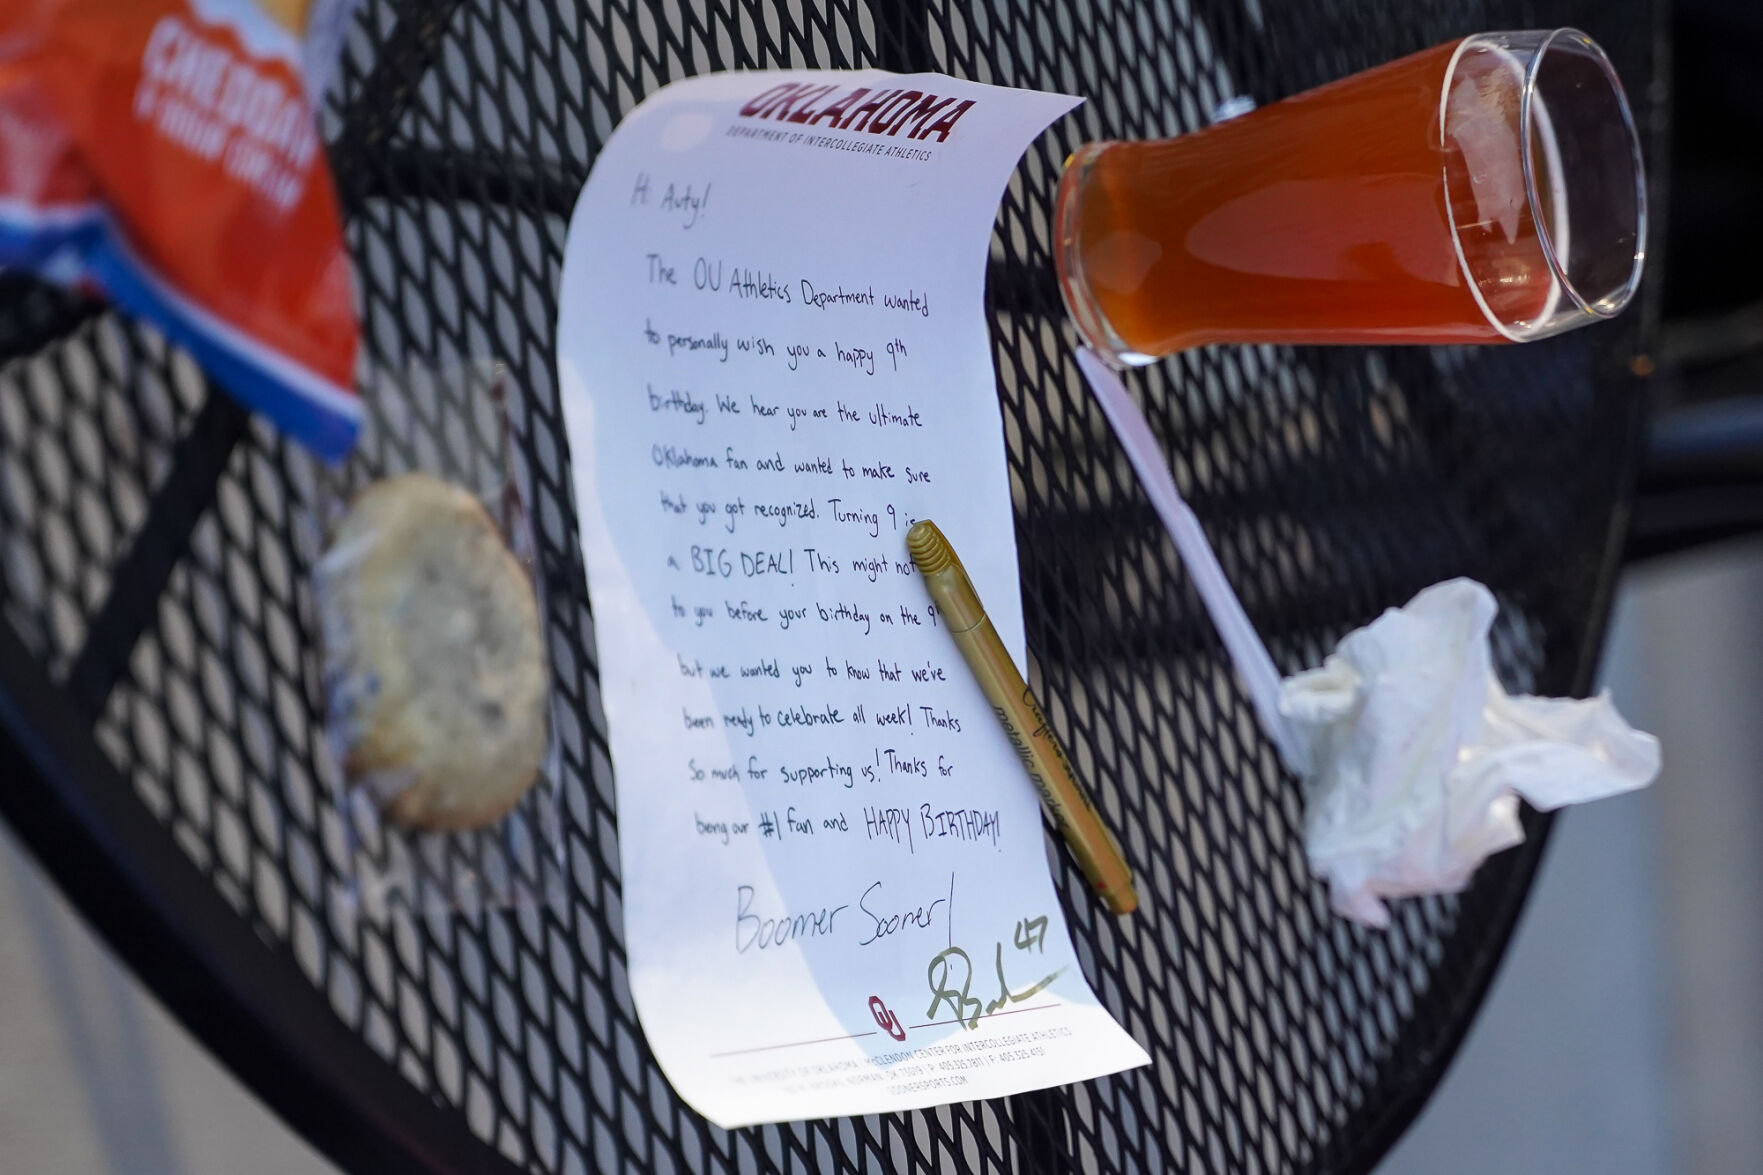 CHEDDAR
OKLAHOMA
DEPARTMENT OF INTERCOLLEGIATE ATHLETICS
Hi Auty!
The OU Athletics Department wanted
to personally wish you a happy 9th
birthday. We hear you are the ultimate
Oklahoma fan and wanted to make sure
that you got recognized. Turning 9 is
a BIG DEAL! This might not
to you before your birthday on the 9th
but we wanted you to know that we've
been ready to celebrate all week! Thanks
So much for supporting us! Thanks for
being our #1 fan and HAPPY BIRTHDAY!
Boomer Sooner!
47
OU
THE UNIVERSITY OF OKLAHOMA | MCCLENDON CENTER FOR INTERCOLLEGIATE ATHLETICS
NORMAN, OK 73019 | P: 405.325.7811 | F: 405.325.4151
SOONERSPORTS.COM
Craftsmart
metallic